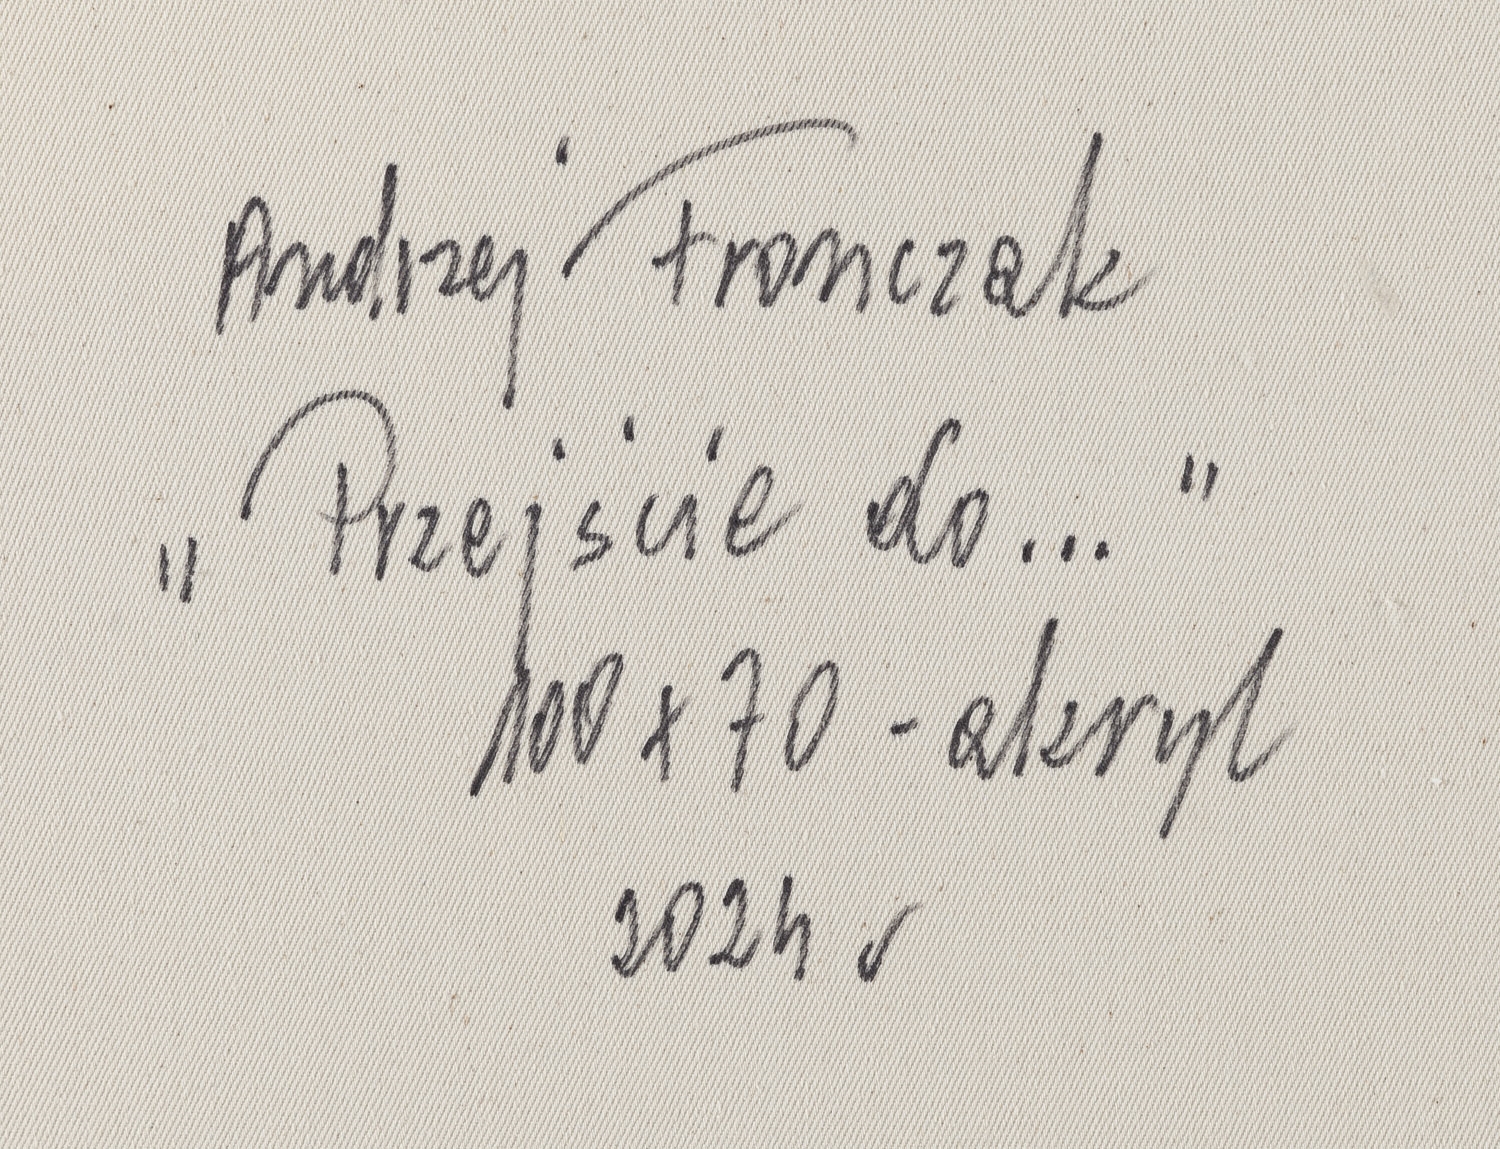 Andrzej Fronczak
„Przejście do..."
100 x 70 - akryl
2024 r